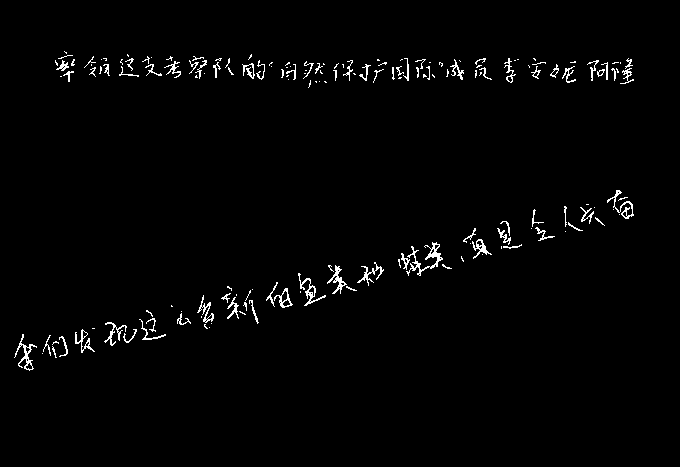 率领这支考察队的“自然保护国际”成员李安妮阿隆
我们发现这么多新的鱼类和蜥类、真是令人兴奋